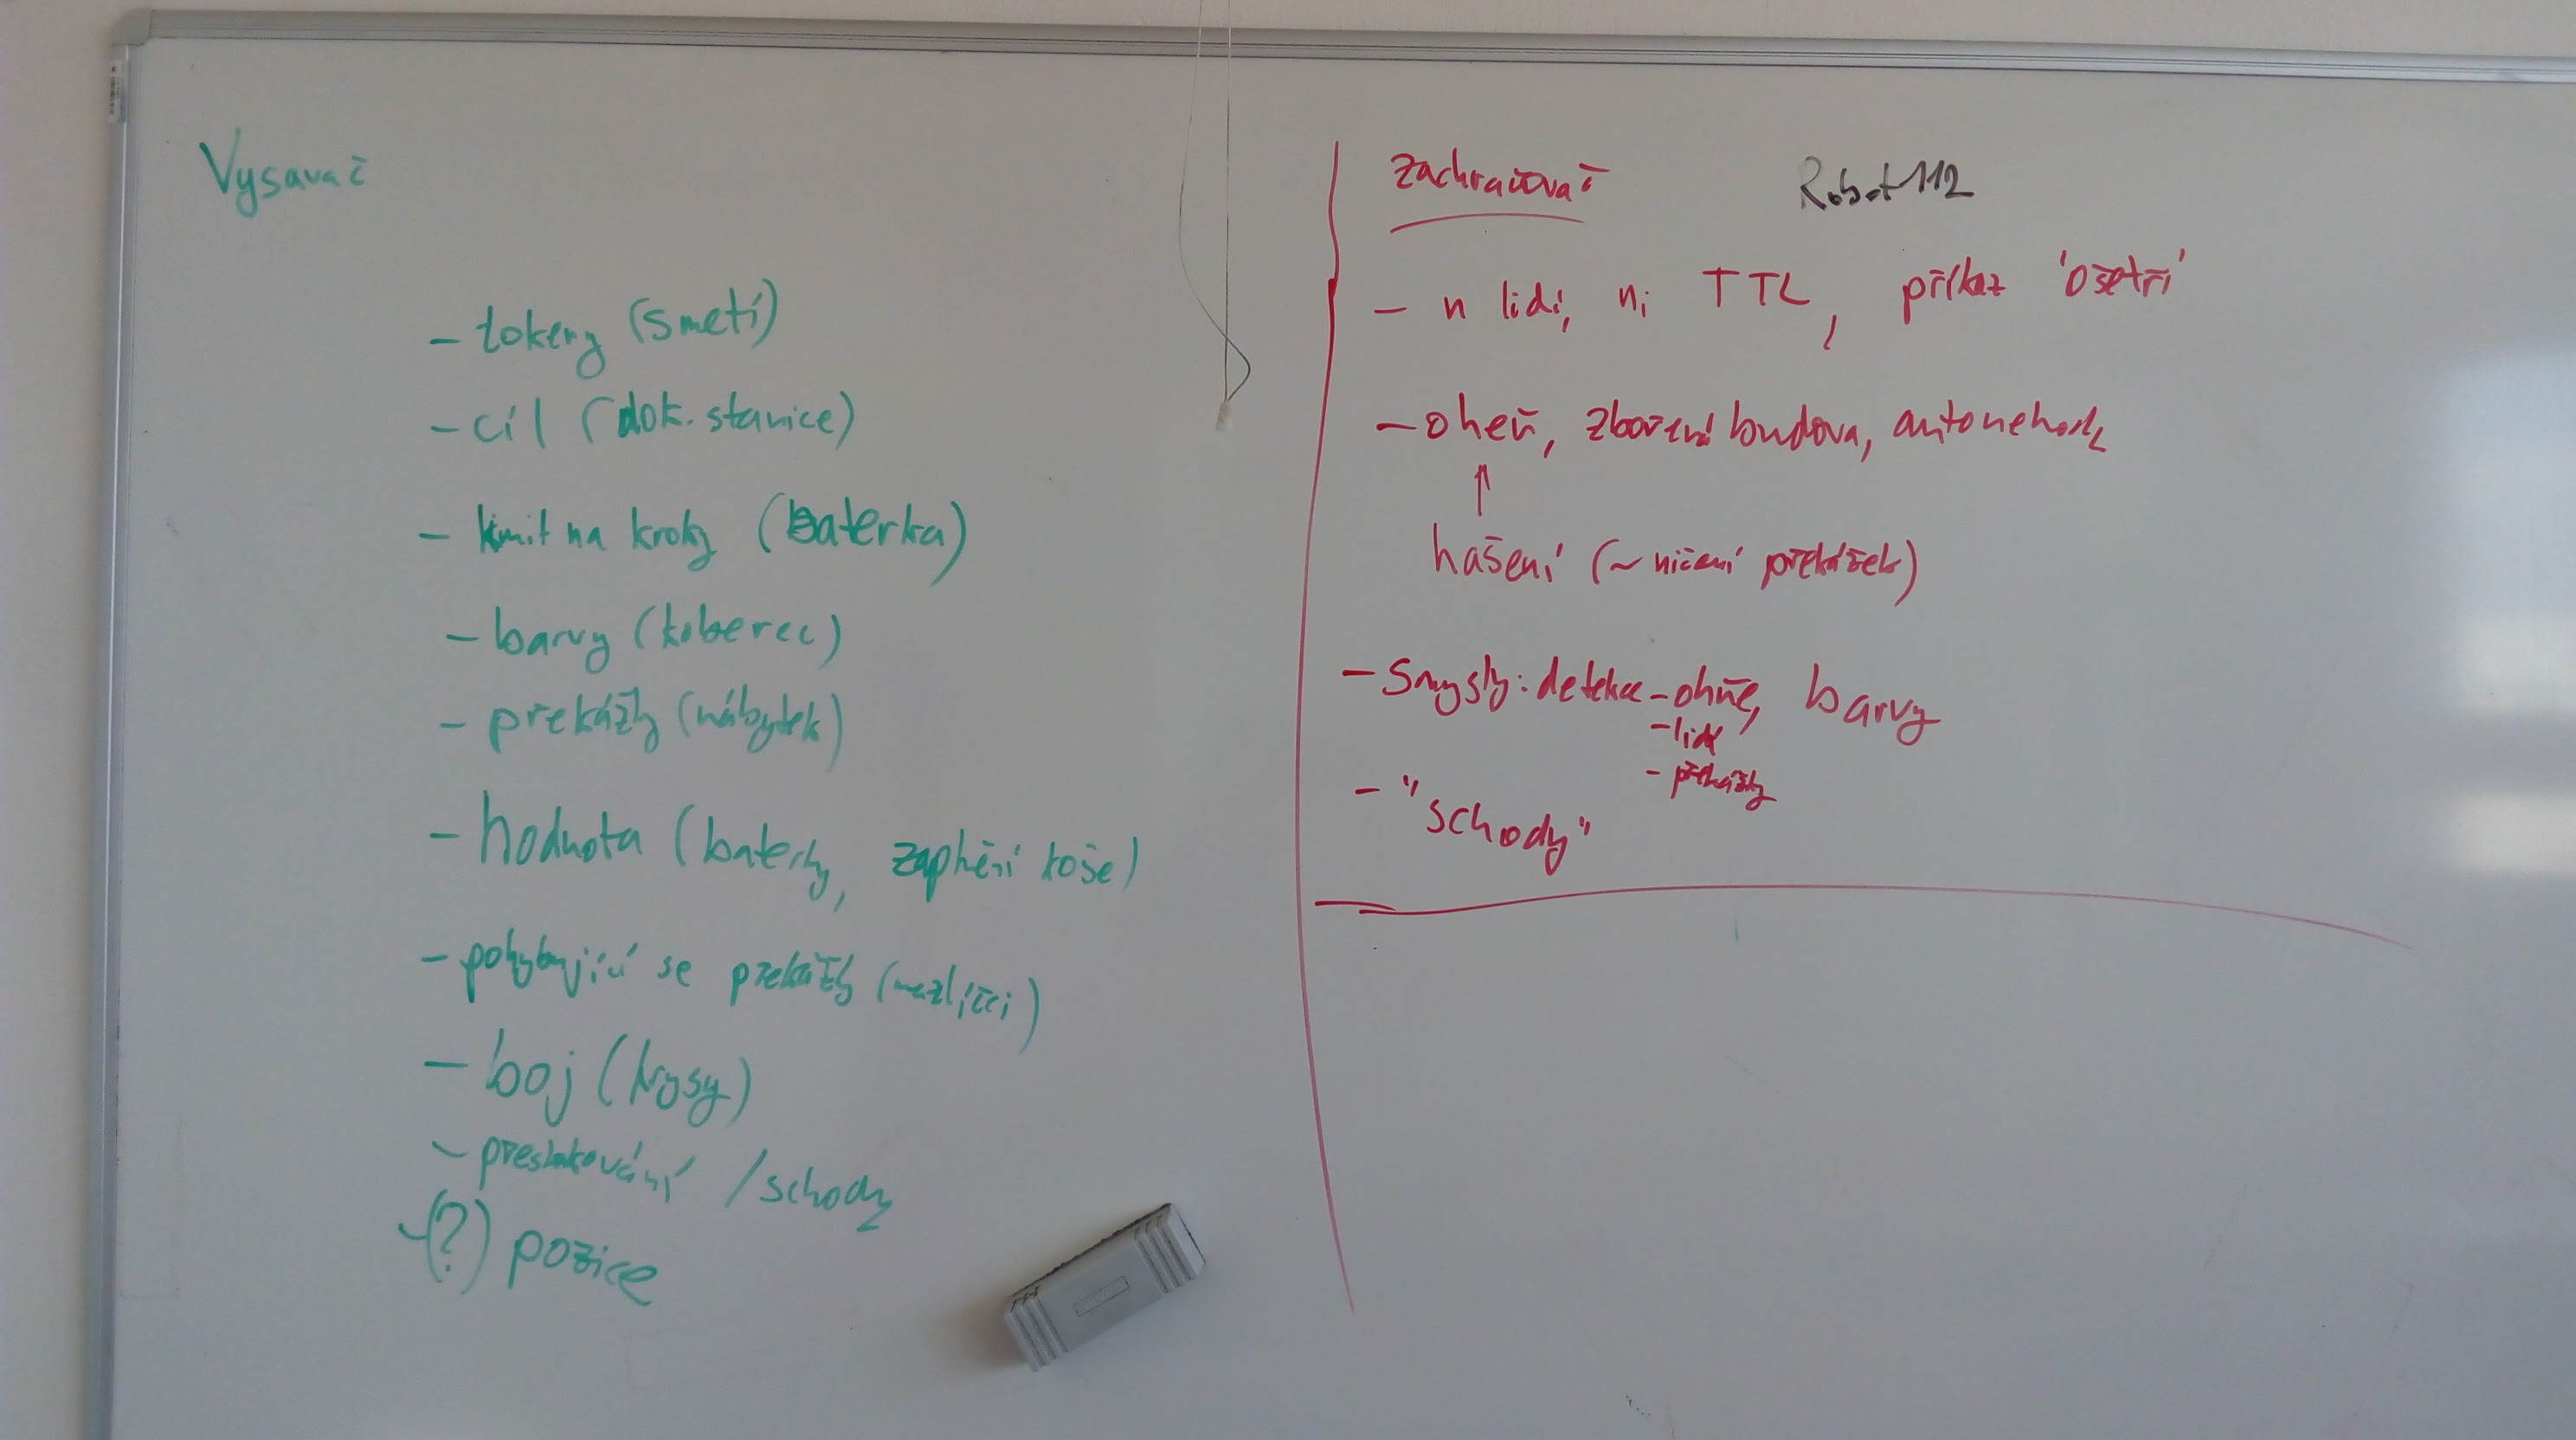 Vysavač
- tokeny (smetí)
- cíl (dok. stanice)
- limit na kroky (baterka)
- barvy (koberec)
- překážky (nábytek)
- hodnota (baterky, zaplnění koše)
- pohybující se překážky (mazlíčci)
- boj (krysy)
- přeskakování / schody
- (?) pozice
zachraňovač
Robot 112
- n lidí, ni TTL, příkaz 'ošetři'
- oheň, zbořená budova, autonehody
↑
hašení (~ ničení překážek)
- Smysly: detekce - ohně, barvy
- lidí
- překážky
- "schody"